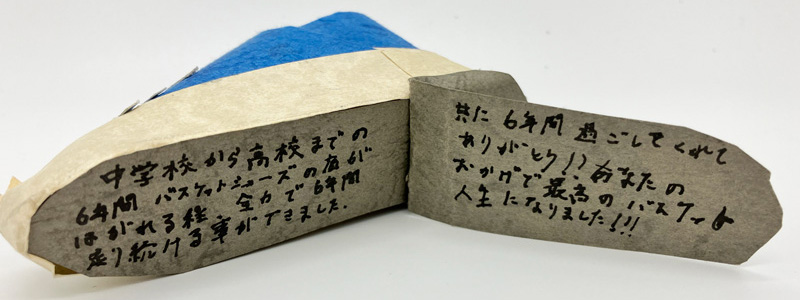 中学校から高校までの
6年間 バスケットシューズの底が
はがれる程 全力で6年間
走り続ける事ができました.
共に 6年間 過ごしてくれて
ありがとう!? あなたの
おかげで最高の バスケット
人生になりました!!!